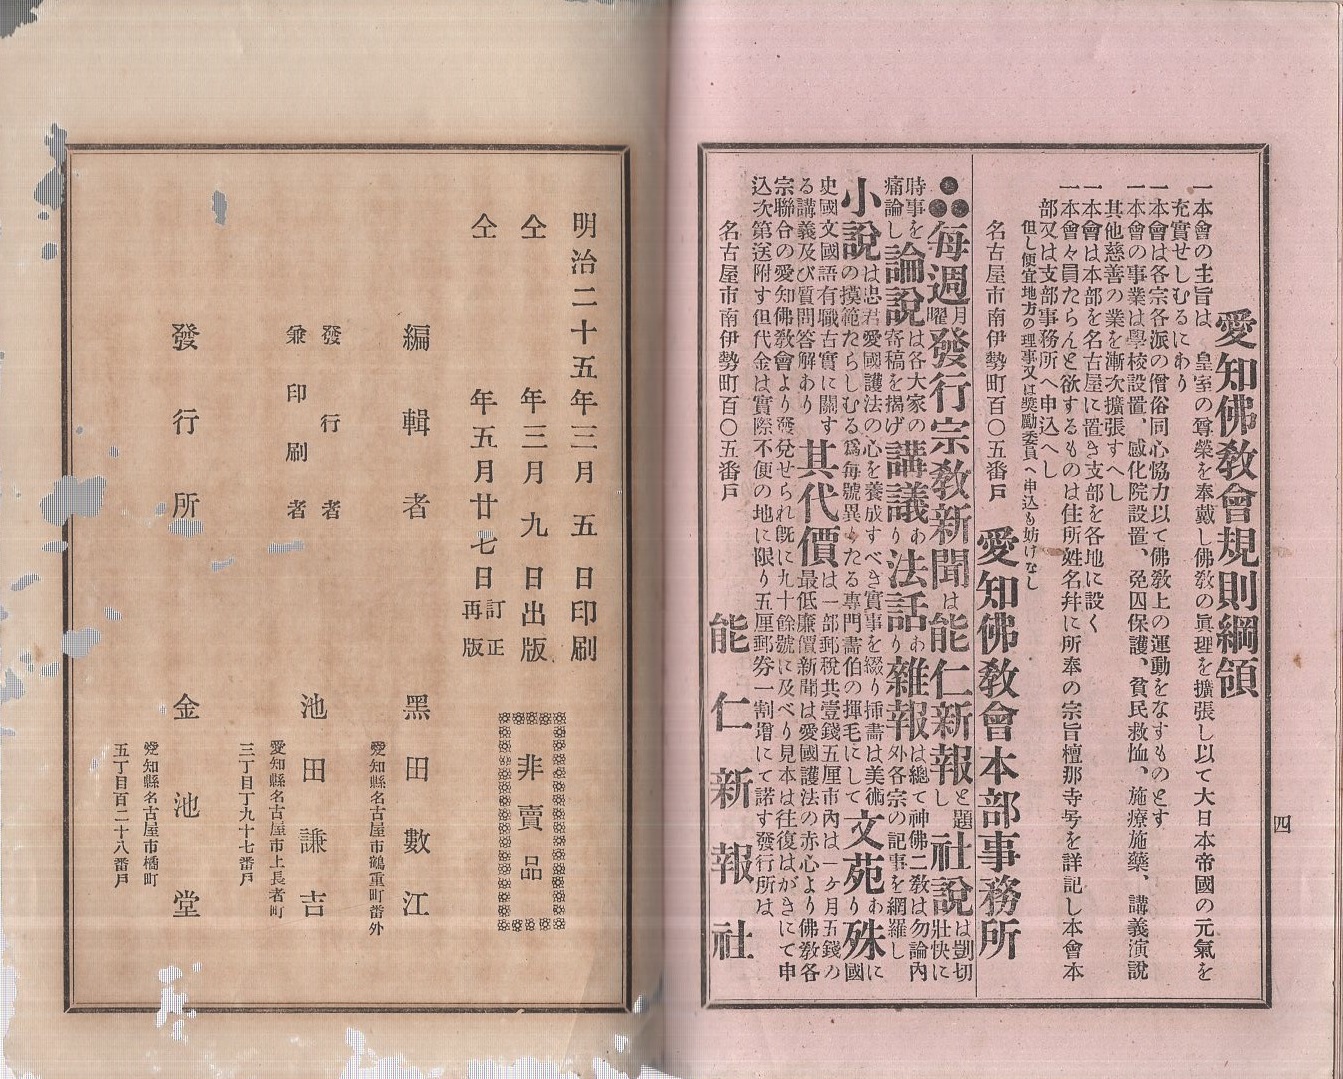 四
愛知佛敎會規則綱領
一本會の主旨は、皇室の尊榮を奉戴し佛敎の眞理を擴張し以て大日本帝國の元氣を
充實せしむるにあり
一本會は各宗各派の僧俗同心恊力以て佛敎上の運動をなすものとす
一本會の事業は學校設置、感化院設置、免囚保護、貧民救恤、施療施藥、講義演說
其他慈善の業を漸次擴張すへし
一本會は本部を名古屋に置き支部を各地に設く
一本會々員たらんと欲するものは住所姓名幷に所奉の宗旨檀那寺号を詳記し本會本
部又は支部事務所へ申込へし
但し便宜地方の理事又は奬勵委員へ申込も妨けなし
名古屋市南伊勢町百〇五番戶
愛知佛敎會本部事務所
每週月曜發行宗敎新聞は能仁新報と題し社說は剴切壯快に
時事を痛論し論說は各大家の寄稿を揭げ講議あり法話あり雜報は總て神佛二敎は勿論內外各宗の記事を網羅し
小說は忠君愛國護法の心を養成すべき實事を綴り揷畵は美術の摸範たらしむる爲每號異りたる專門畵伯の揮毛にして文苑あり殊に國
史國文國語有職古實に關する講義及び質問答解あり其代價は一部郵稅共壹錢五厘市內は一ヶ月五錢の最低廉價新聞は愛國護法の赤心より佛敎各
宗聯合の愛知佛敎會より發兌せられ旣に九十餘號に及べり見本は往復はがきにて申
込次第送附す但代金は實際不便の地に限り五厘郵券一割增にて諾す發行所は
名古屋市南伊勢町百〇五番戶
能仁新報社
明治二十五年三月五日印刷
仝年三月九日出版
仝年五月廿七日訂正再版
非賣品
編輯者 黑田數江
愛知縣名古屋市鶴重町番外
發行者
兼印刷者 池田謙吉
愛知縣名古屋市上長者町
三丁目丁九十七番戶
發行所 金池堂
愛知縣名古屋市橘町
五丁目百二十八番戶